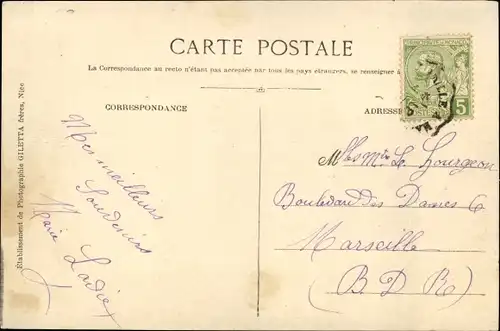 CARTE POSTALE
La Correspondance au recto n'étant pas acceptée par tous les pays étrangers, se renseigner à
CORRESPONDANCE
ADRESSE
Établissement de Photographie GILETTA frères, Nice
Mes meilleurs
Souvenirs
Marie
5
5
Boulevard des Dames 6
Marseille
(B D R)